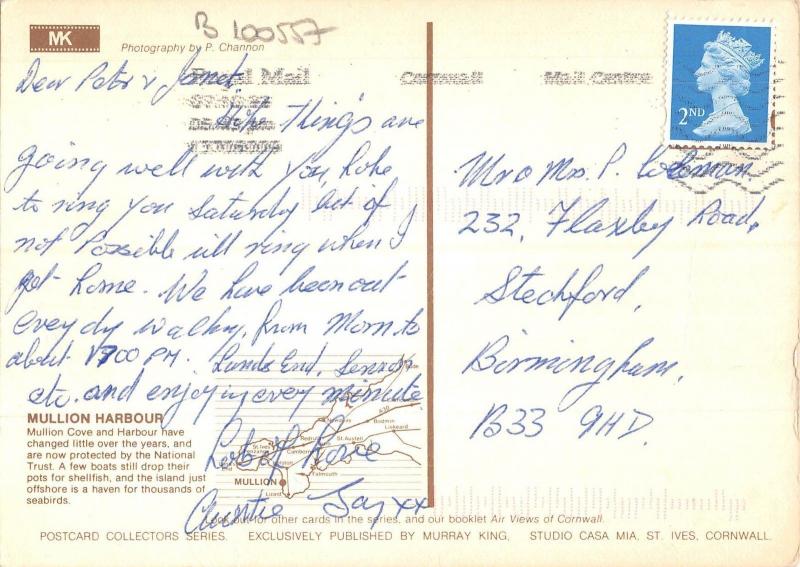 MK
Photography by P. Channon
B 100557
Mail Cornwall Mail Centre
2ND
Dear Peter & Janet
Hope things are
going well with you, hope
to ring you Saturday but if
not possible will ring when I
get home. We have been out
every dy walking, from Morn to
about 1700 PM. Lands End, Sennon
etc. and enjoying every minute
Lots of Love
Auntie Jay xx
Mr & Mrs. P. Coleman
232, Flaxley Road,
Stechford,
Birmingham,
B33 9HD.
MULLION HARBOUR
Mullion Cove and Harbour have
changed little over the years, and
are now protected by the National
Trust. A few boats still drop their
pots for shellfish, and the island just
offshore is a haven for thousands of
seabirds.
A30
Newquay
Bodmin
Liskeard
St. Ives
Redruth
St. Austell
Camborne
Falmouth
MULLION
Lizard
Look out for other cards in the series, and our booklet Air Views of Cornwall.
POSTCARD COLLECTORS SERIES. EXCLUSIVELY PUBLISHED BY MURRAY KING, STUDIO CASA MIA, ST. IVES, CORNWALL.